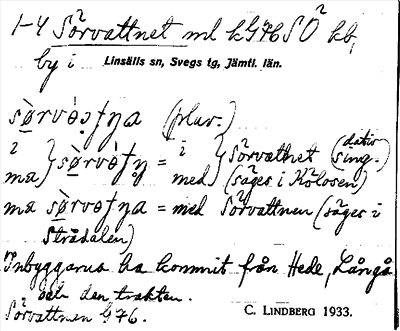 1-4 Sörvattnet ml k G76 SO² kb,
by i Linsälls sn, Svegs tg, Jämtl. län.
(plur.)
i = i Sörvattnet (dativ sing.)
ma = med (säges i Kölosen)
ma = med Sörvattnen (säges i
Strådalen)
Inbyggarna ha kommit från Hede, Långå
och den trakten.
Sörvattnen G76.
C. LINDBERG 1933.